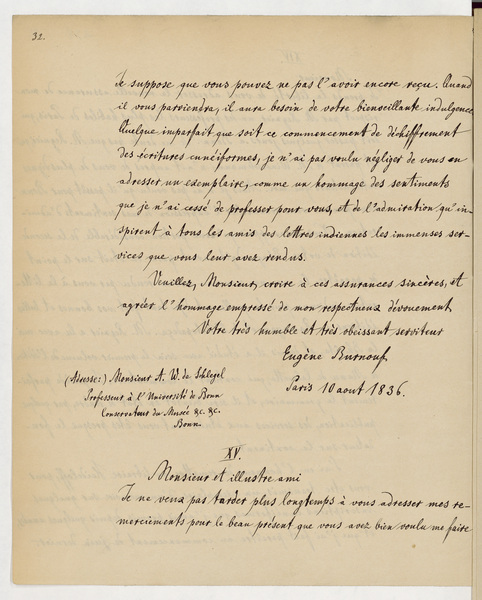 32.
Je suppose que vous pouvez ne pas l'avoir encore reçu. Quand
il vous parviendra, il aura besoin de votre bienveillante indulgence.
Quelque imparfait que soit ce commencement de déchiffrement
des écritures cunéiformes, je n'ai pas voulu négliger de vous en
adresser un exemplaire, comme un hommage des sentiments
que je n'ai cessé de professer pour vous, et de l'admiration qu'in-
spirent à tous les amis des lettres indiennes les immenses ser-
vices que vous leur avez rendus.
Veuillez, Monsieur, croire à ces assurances sincères, et
agréer l'hommage empressé de mon respectueux dévouement
Votre très humble et très obeissant serviteur
Eugène Burnouf
Paris 10 aout 1836.
(Adresse:) Monsieur A. W. de Schlegel
Professeur à l'Université de Bonn
Conservateur du Musée &c. &c.
Bonn
XV.
Monsieur et illustre ami
Je ne veux pas tarder plus longtemps à vous adresser mes re-
merciements pour le beau présent que vous avez bien voulu me faire